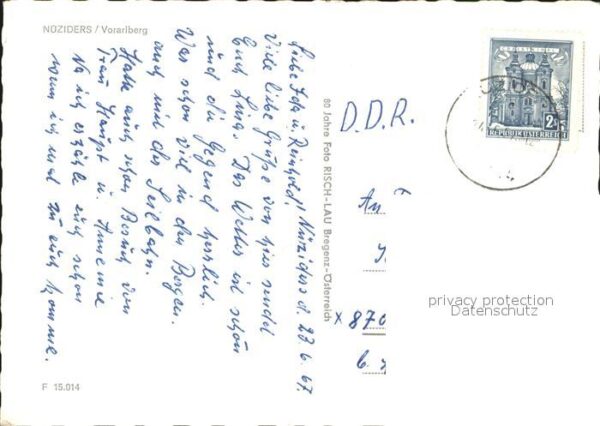 NÜZIDERS / Vorarlberg
Liebe Fda u. Reinhold! Nüziders d. 23. 6. 67.
Viele liebe Grüße von hier sendet
Euch Lina. Das Wetter ist schön
und die Gegend herrlich.
War schon viel in den Bergen.
auch mit der Seilbahn.
Hatte auch schon Besuch von
Frau Haupt u. Annemie
Na ich erzähle euch schon
wenn ich mal zu euch komme.
F 15.014
80 Jahre Foto RISCH-LAU Bregenz-Österreich
D.D.R.
An
x 870
CHRISTKINDL
2S
REPUBLIK ÖSTERREICH
privacy protection
Datenschutz